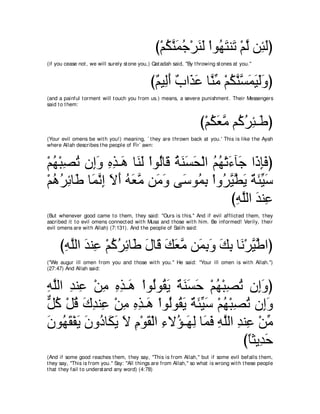 (لَئِن لَّمْ تَنتَهُواْ لَنَرْجُمَنَّكُمْ)
(if you cease not, we will surely stone you,) Qatadah said, "By throwing stones at you."
(وَلَيَمَسَّنَّكُمْ مِّنَّا عَذَابٌ أَلِيمٌ)
(and a painful torment will touch you from us.) means, a severe punishment. Their Messengers
said to them:
(طَـئِرُكُم مَّعَكُمْ)
(Your evil omens be with you!) meaning, `they are thrown back at you.' This is like the Ayah
where Allah describes the people of Fir`awn:
(فَإِذَا جَآءَتْهُمُ الْحَسَنَةُ قَالُواْ لَنَا هَـذِهِ وَإِن تُصِبْهُمْ
سَيِّئَةٌ يَطَّيَّرُواْ بِمُوسَى وَمَن مَّعَهُ أَلاَ إِنَّمَا طَائِرُهُمْ
عِندَ اللَّهِ)
(But whenever good came to them, they said: "Ours is this." And if evil afflicted them, they
ascribed it to evil omens connected with Musa and those with him. Be informed! Verily, their
evil omens are with Allah) (7:131). And the people of Salih said:
(اطَّيَّرْنَا بِكَ وَبِمَن مَّعَكَ قَالَ طَائِرُكُمْ عِندَ اللَّهِ)
("We augur ill omen from you and those with you." He said: "Your ill omen is with Allah.")
(27:47) And Allah said:
(وَإِن تُصِبْهُمْ حَسَنَةٌ يَقُولُواْ هَـذِهِ مِنْ عِندِ اللَّهِ
وَإِن تُصِبْهُمْ سَيِّئَةٌ يَقُولُواْ هَـذِهِ مِنْ عِندِكَ قُلْ كُلٌّ
مِّنْ عِندِ اللَّهِ فَمَا لِهَـؤُلاءِ الْقَوْمِ لاَ يَكَادُونَ يَفْقَهُونَ
حَدِيثاً)
(And if some good reaches them, they say, "This is from Allah," but if some evil befalls them,
they say, "This is from you." Say: "All things are from Allah," so what is wrong with these people
that they fail to understand any word) (4:78)